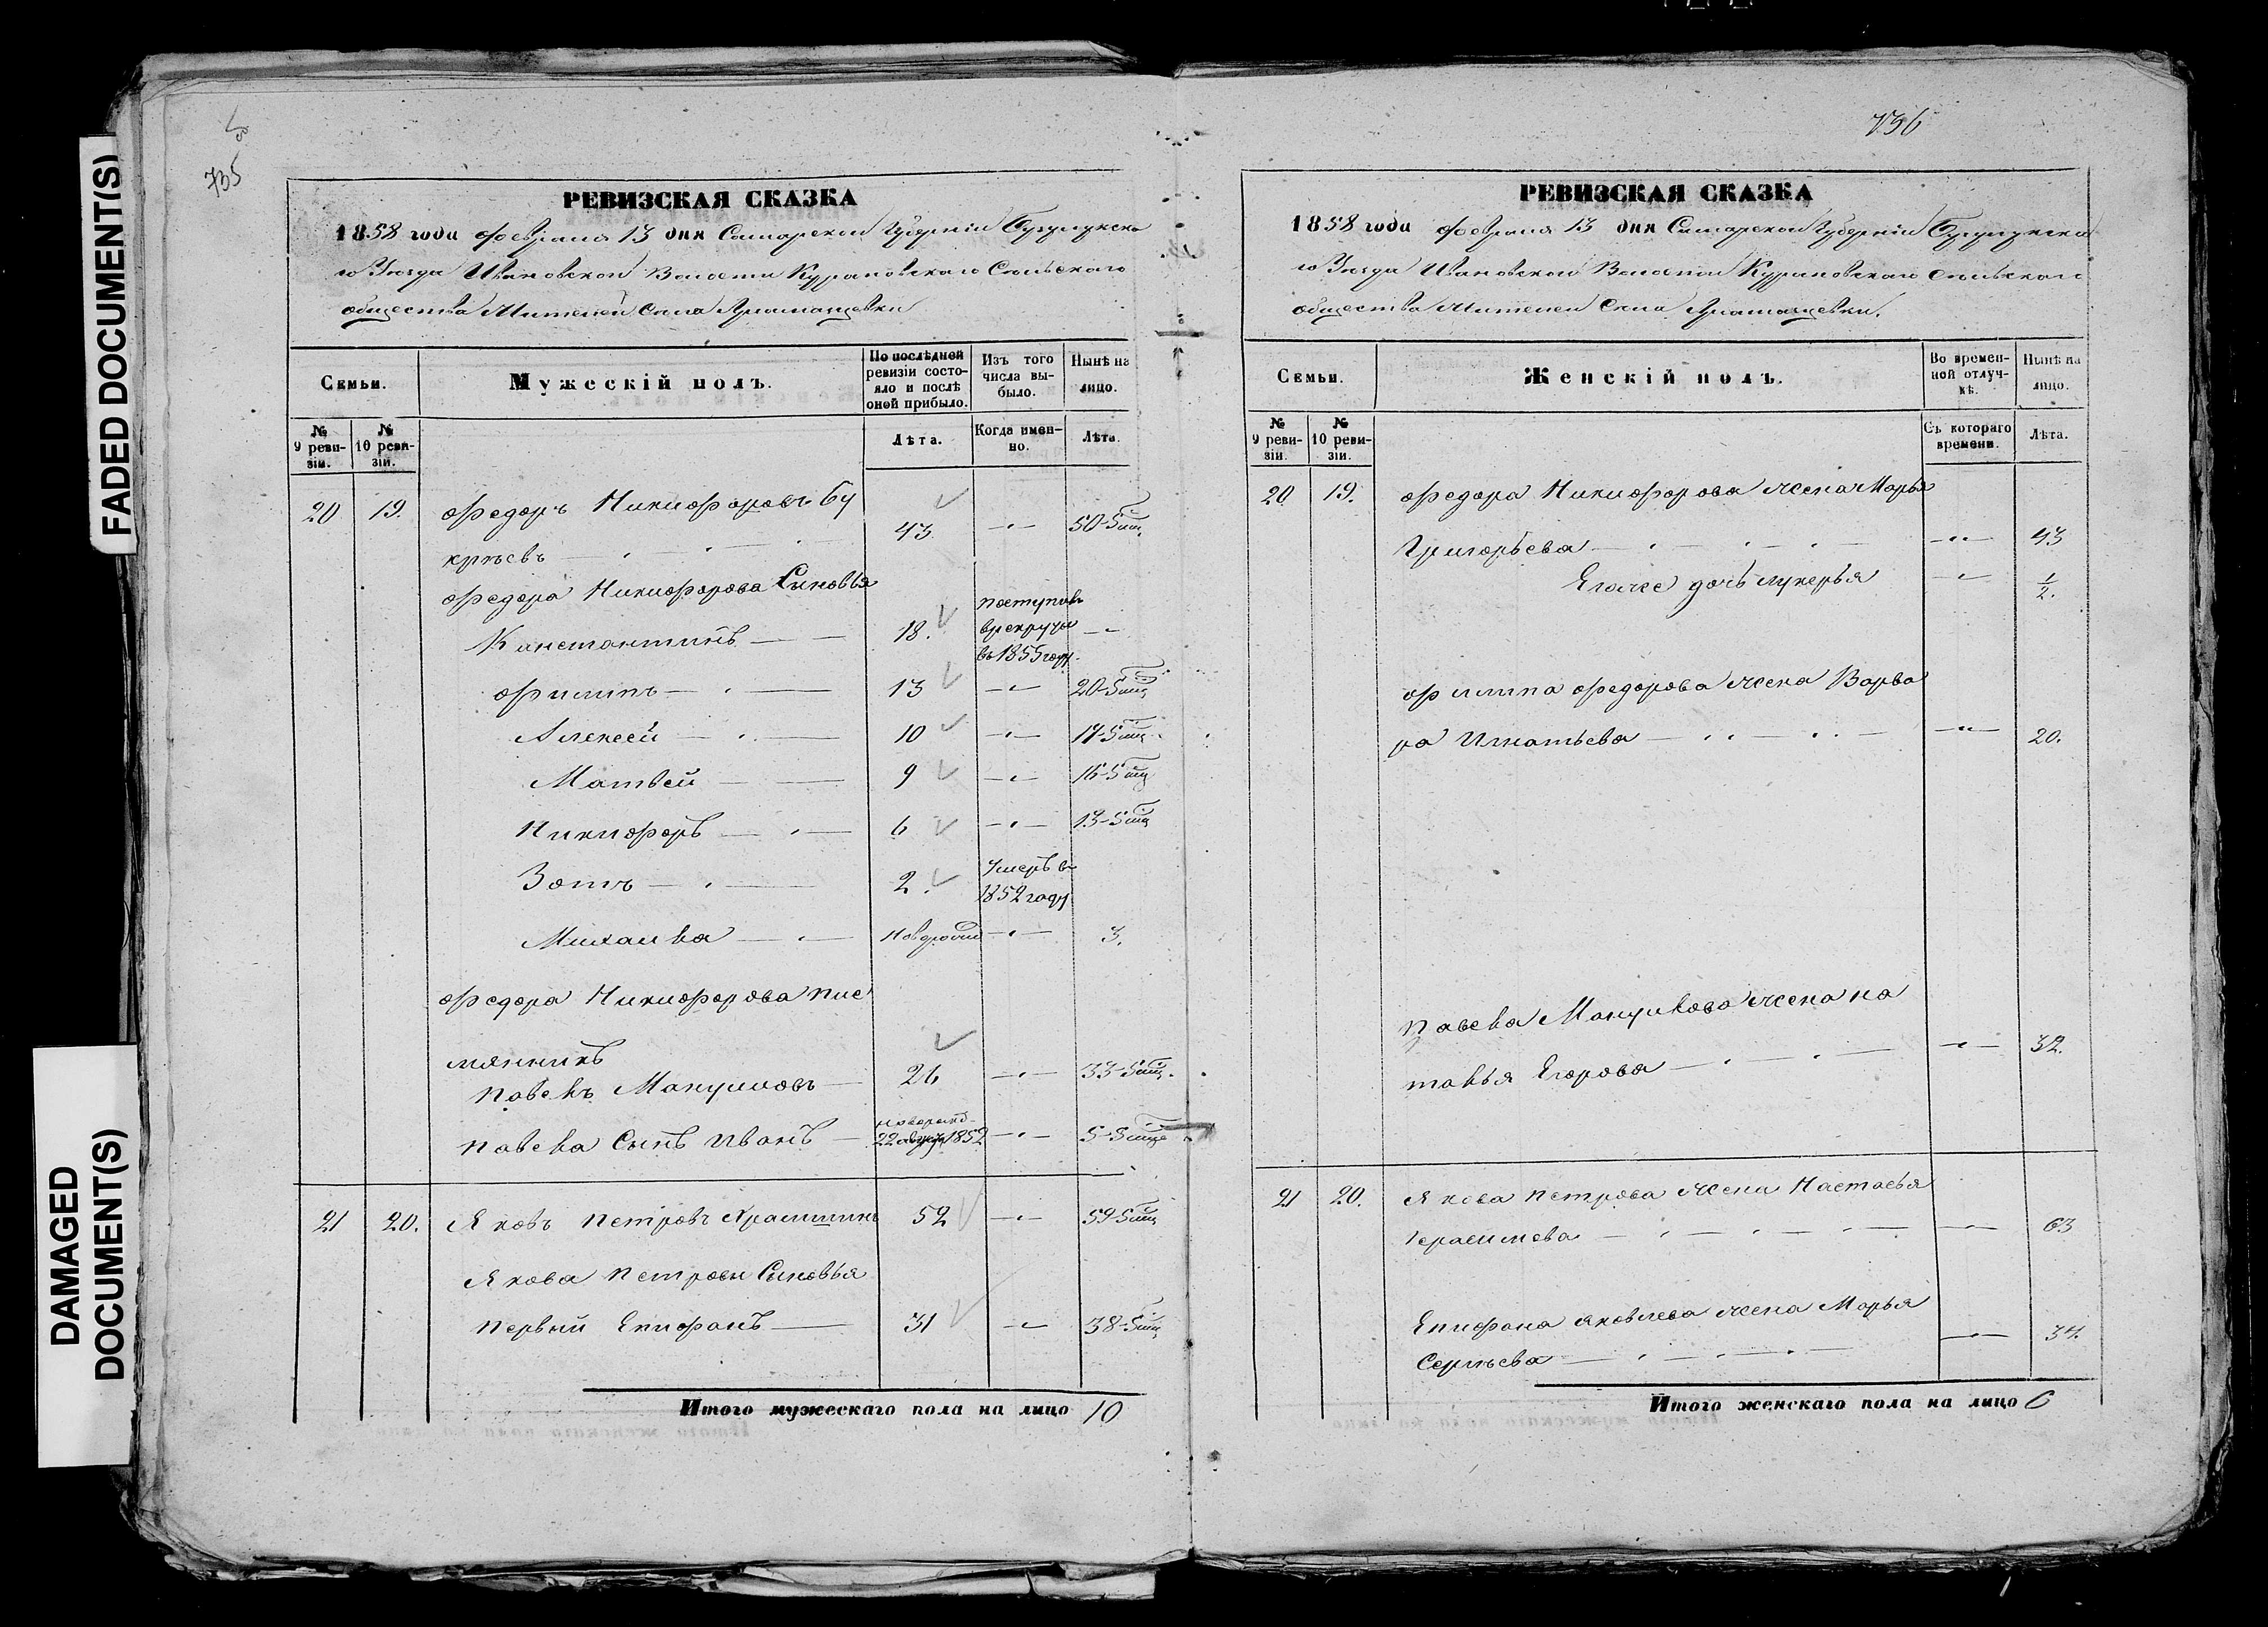 FADED DOCUMENT(S)
DAMAGED DOCUMENT(S)
735
РЕВИЗСКАЯ СКАЗКА
1858 года февраля 13 дня Самарской Губерніи Бугурускла
го Уѣзда Ивановской Волости Сельскаго
общества Жителей Села
Семьи.
Мужескій полъ.
По послѣдней ревизіи состояло и послѣ оной прибыло.
Изъ того числа выбыло.
Нынѣ на лицо.
№ 9 ревизіи.
№ 10 ревизіи.
Лѣта.
Когда именно.
Лѣта.
20 19. Федоръ Никифоровъ Бу
крѣевъ 43 50-5 мѣц.
Федора Никифорова Сыновья
Канстантинъ 18. поступилъ
врекруты
въ 1855 году.
Филипъ 13 20-5 мѣц
Алексей 10 17-5 мѣц.
Матвей 9 16-5 мѣц
Никифоръ 6 13-5 мѣц
Зотъ 2. Умеръ въ
1852 году
Михаила новорожд 3.
Федора Никифорова пле
мянникъ
Павелъ 26 33-5 мѣц.
Павела Сынъ Иванъ новорожд. 22 1852 5-5 мѣце
21 20. Яковъ Петровъ 52 59-5 мѣц
Якова Петрова Сыновья
Первый Епифанъ 31 38-5 мѣц
Итого мужескаго пола на лицо 10
736
РЕВИЗСКАЯ СКАЗКА
1858 года февраля 13 дня Самарской Губерніи
го Уѣзда Ивановской Волости Сельскаго
общества Жителей Села
Семьи.
Женскій полъ.
Во временной отлучкѣ.
Нынѣ на лицо.
№ 9 ревизіи.
№ 10 ревизіи.
Съ котораго времени.
Лѣта.
20 19. Федора Никифорова жена Марья
Григорьева 43
Егоже дочь лукерья 1/2.
Филипа Федорова жена Варва
ра Игнатьева 20.
Павела жена на
талья Егорова 32.
21 20. Якова Петрова жена Настасья
Герасимова 63
Епифана Яковлева жена Марья
Сергѣева 34.
Итого женскаго пола на лицо 6